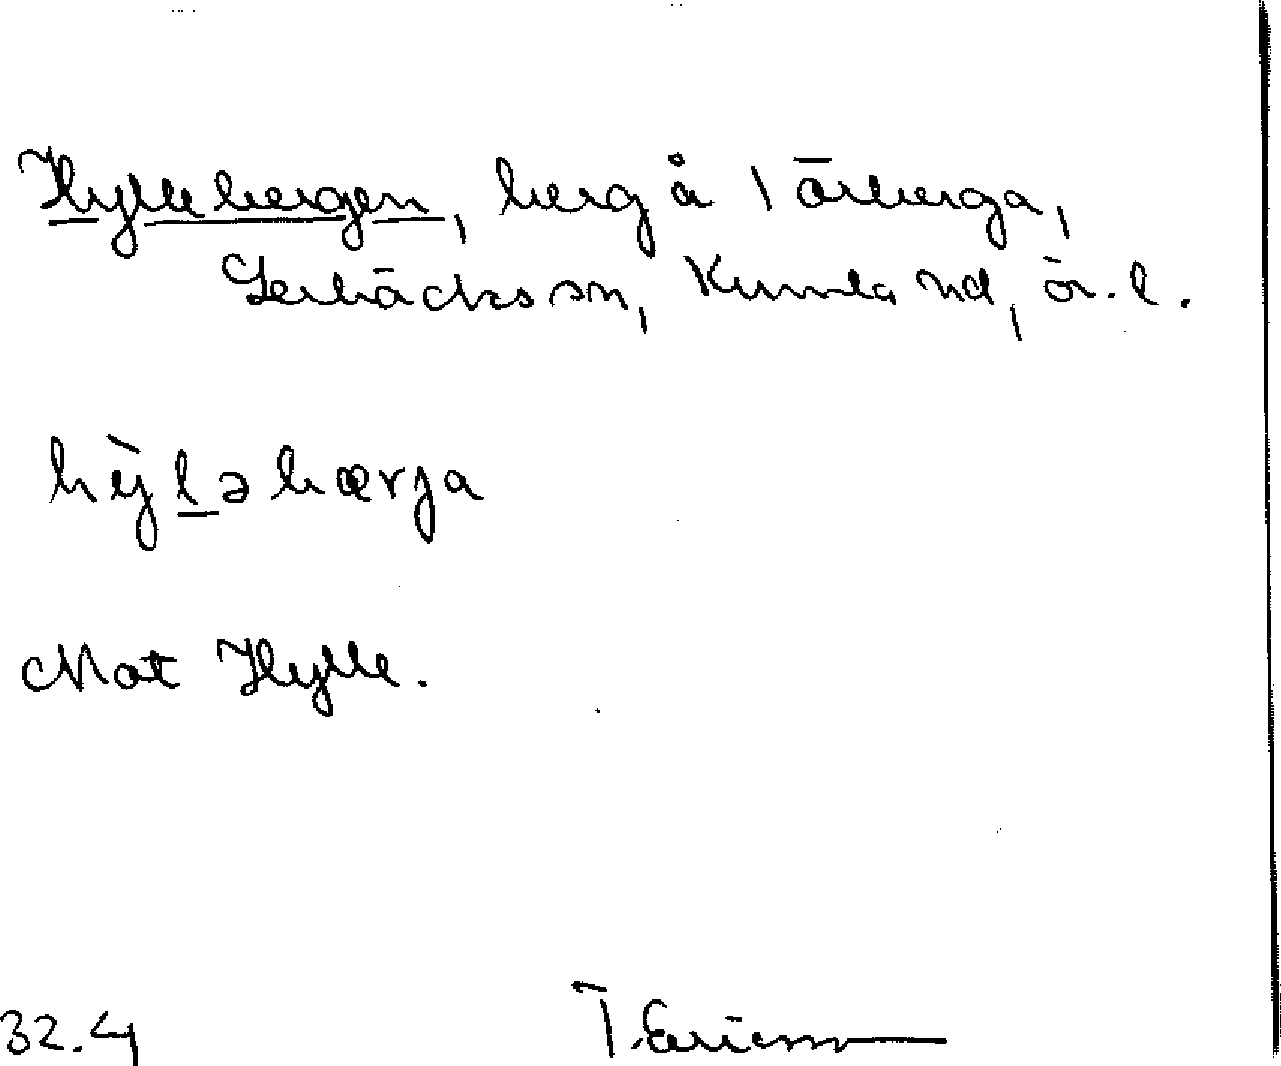 Hyllebergen, berg å 1 Örberga,
Lerbäcks sn, Kumla hd, ör. l.
hỳləbærja
Mot Hylle.
32.4 T. Ericsson